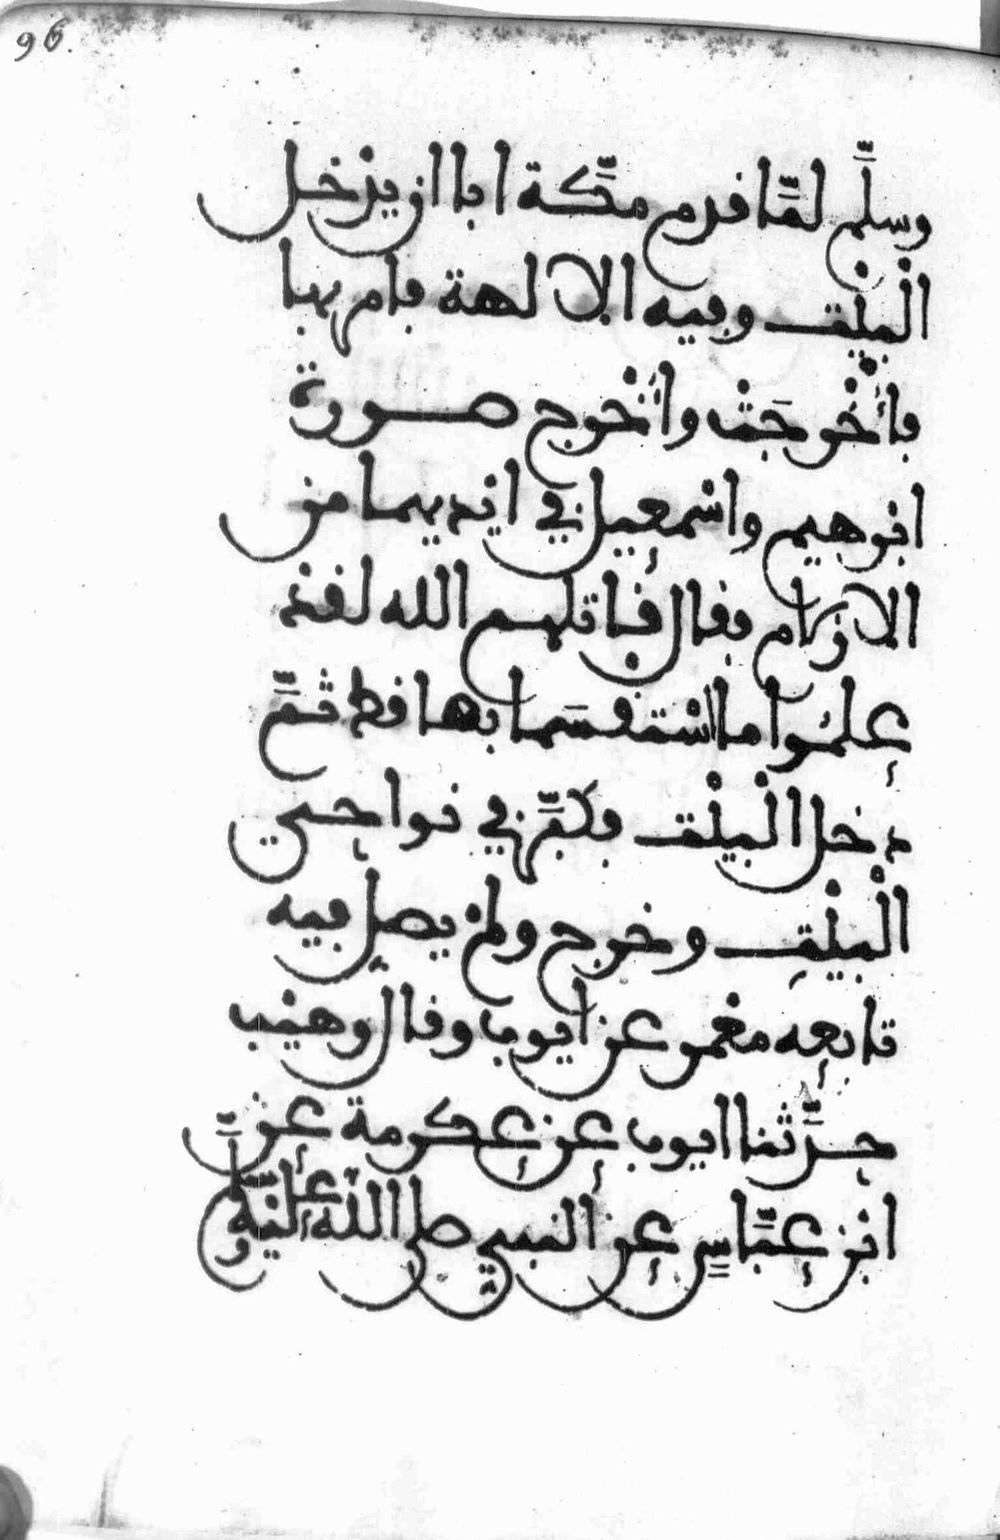 96
وسلَّم لمَّا قدم مكَّة ابا ان يدخل
الْبيْت وفيه الالهة فامر بها
فأُخْرجَتْ وأُخْرج صورة
ابْرهيم واسْمعِيل في ايْديهما من
الازلام فقال قاتلهم الله لقدْ
عِلمُوا ما اسْتقْسَما بها قط ثمَّ
دخل الْبيْت فكبَّر في نواحي
الْبيْتِ وخرج ولمْ يصلِ فيه
تابعه معْمر عن ايوب وقال وهيْب
حدَّثنا ايوب عن عِكرمة عن
ابْن عبَّاسٍ عن النبي صلى الله عليْه وسلَّم